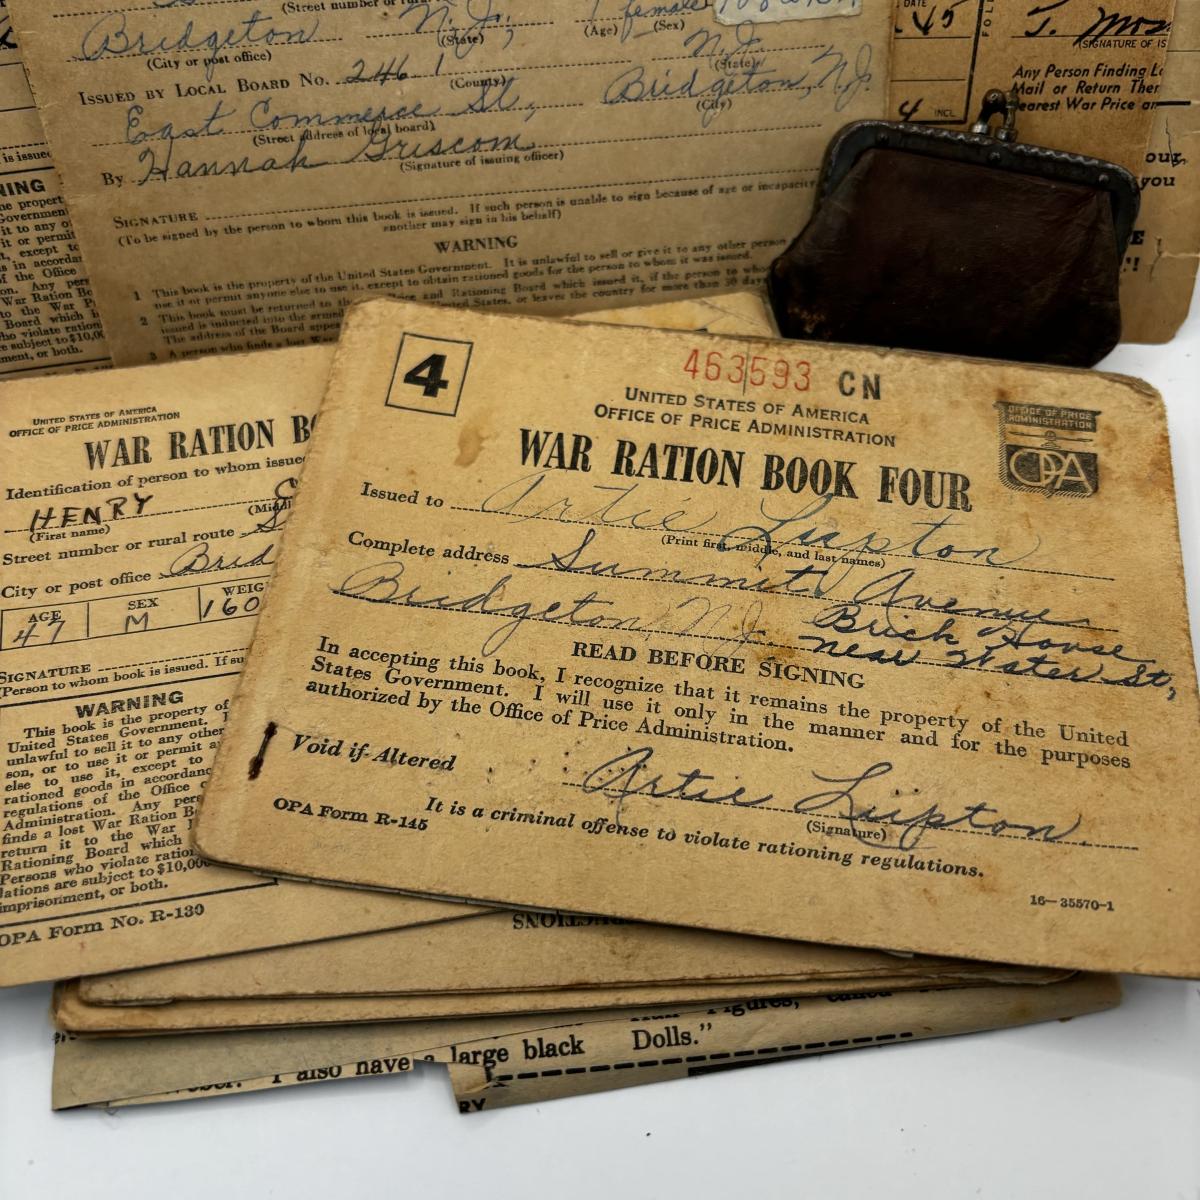 (Street number or rural
Bridgeton N.J.,
(City or post office) (State) (Age) female (Sex)
ISSUED BY LOCAL BOARD NO. 246.1 (County) N.J. (State)
East Commerce St., Bridgeton, N.J.
(Street address of local board) (City)
By Hannah Griscom
(Signature of issuing officer)
SIGNATURE
(To be signed by the person to whom this book is issued. If such person is unable to sign because of age or incapacity
another may sign in his behalf)
WARNING
1 This book is the property of the United States Government. It is unlawful to sell or give it to any other person
use it or permit anyone else to use it, except to obtain rationed goods for the person to whom it was issued.
2 This book must be returned to the Price and Rationing Board which issued it, if the person to who
issued is inducted into the armed United States, or leaves the country for more than 30 day
The address of the Board appe
3 A person who finds a lost War
DATE
45
4 INCL.
T.
(SIGNATURE OF IS
Any Person Finding Lo
Mail or Return Them
earest War Price an
our
you
is issued
NING
UNITED STATES OF AMERICA
OFFICE OF PRICE ADMINISTRATION
WAR RATION BO
Identification of person to whom issued
HENRY
(First name) (Middl
Street number or rural route
City or post office Brid
AGE 47 SEX M WEIG 160
SIGNATURE
(Person to whom book is issued. If su
WARNING
This book is the property of
United States Government. I
unlawful to sell it to any other
son, or to use it or permit a
else to use it, except to
rationed goods in accordanc
regulations of the Office o
Administration. Any pers
finds a lost War Ration B
return it to the War
Rationing Board which
Persons who violate ration
lations are subject to $10,000
imprisonment, or both.
OPA Form No. R-130
4
463593 CN
UNITED STATES OF AMERICA
OFFICE OF PRICE ADMINISTRATION
OFFICE OF PRICE
ADMINISTRATION
OPA
WAR RATION BOOK FOUR
Issued to Artie Lupton
(Print first, middle, and last names)
Complete address Summit Avenue
Bridgeton, N.J. Brick House
near Water St,
READ BEFORE SIGNING
In accepting this book, I recognize that it remains the property of the United
States Government. I will use it only in the manner and for the purposes
authorized by the Office of Price Administration.
Void if Altered Artie Lupton
(Signature)
OPA Form R-145 It is a criminal offense to violate rationing regulations.
16—35570-1
Figures, called
I also have a large black Dolls."
RY